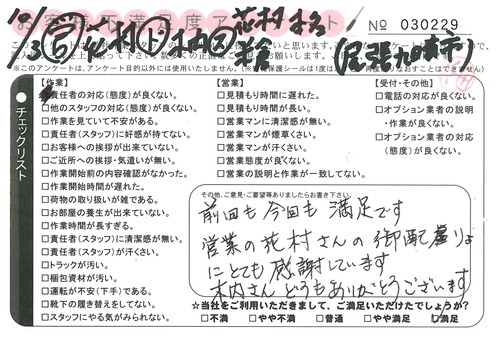 お客様不満足度アンケート
№ 030229
10/3
(尾張旭市)
※このアンケートは、アンケート目的以外には使用いたしません。
チェックリスト
【作業】
□責任者の対応(態度)が良くない。
□他のスタッフの対応(態度)が良くない。
□作業を見ていて不安がある。
□責任者(スタッフ)に好感が持てない。
□お客様への挨拶が出来ていない。
□ご近所への挨拶・気遣いが無い。
□作業開始前の内容確認がなかった。
□作業開始時間が遅れた。
□荷物の取り扱いが雑である。
□お部屋の養生が出来ていない。
□作業時間が長すぎる。
□責任者(スタッフ)に清潔感が無い。
□責任者(スタッフ)が汗くさい。
□トラックが汚い。
□梱包資材が汚い。
□運転が不安(下手)である。
□靴下の履き替えをしてない。
□スタッフにやる気がみられない。
【営業】
□見積もり時間に遅れた。
□見積もり時間が長い。
□営業マンに清潔感が無い。
□営業マンが煙草くさい。
□営業マンが汗くさい。
□営業態度が良くない。
□営業の説明と作業が一致してない。
【受付・その他】
□電話の対応が良くない。
□オプション業者の説明
・作業が良くない。
□オプション業者の対応
(態度)が良くない。
その他、ご意見・ご要望等ありましたらお書き下さい。
前回も今回も満足です
営業の花村さんの御配慮
にとても感謝しています
木内さんどうもありがとうございます
☆当社をご利用いただきまして、ご満足いただけたでしょうか?
□不満 □やや不満 □普通 □やや満足 □満足